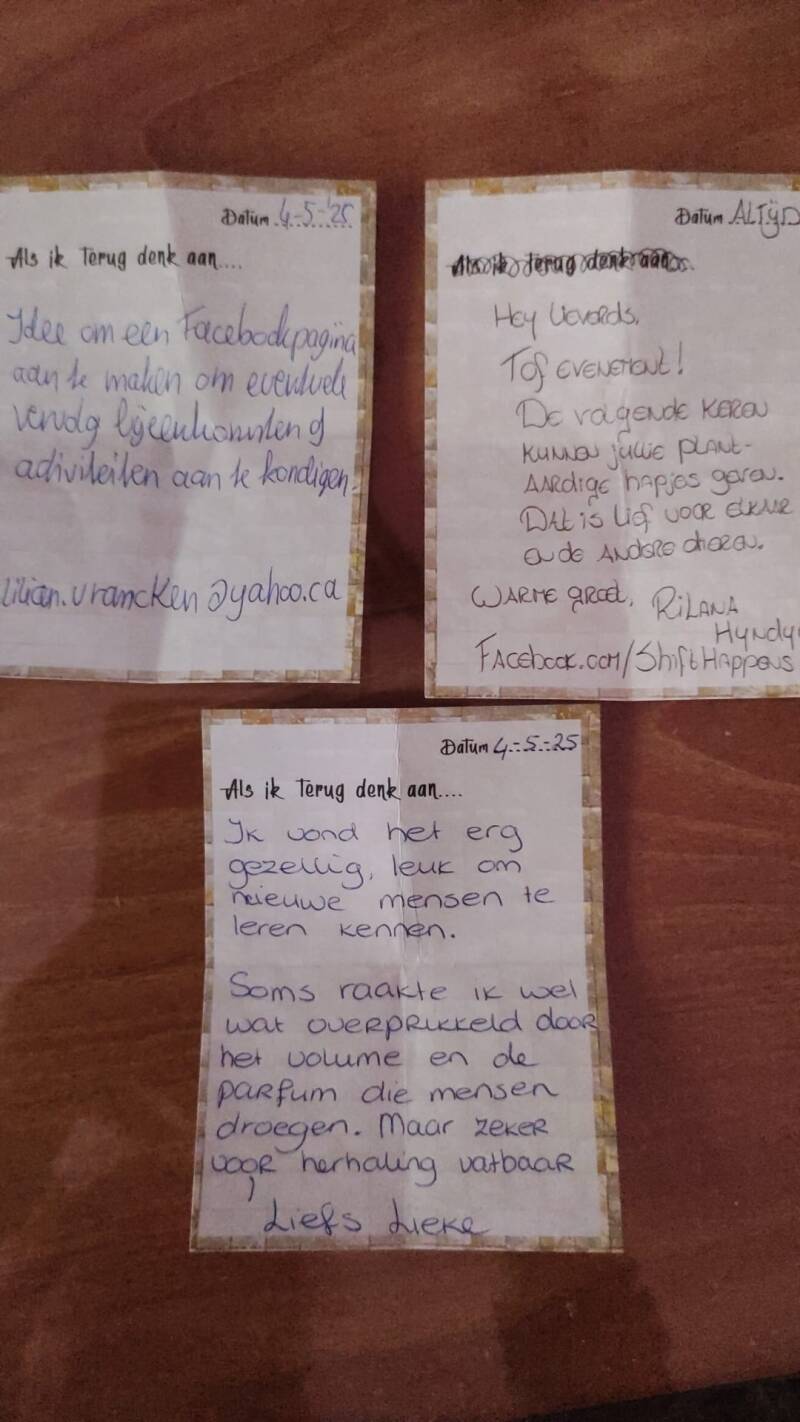 Datum 4-5-'25
Als ik terug denk aan....
Idee om een Facebookpagina
aan te maken om eventuele
vervolg bijeenkomsten of
activiteiten aan te kondigen.
lilian.vrancken@yahoo.ca
Datum ALTijD
Als ik terug denk aan....
Hey lieverds,
Tof evenement!
De volgende keren
kunnen jullie plant-
aardige hapjes geven.
Dat is lief voor elkaar
en de andere dieren.
Warme groet, Rilana
Hyndy
Facebook.com/ShiftHappens
Datum 4-5-25
Als ik terug denk aan....
Ik vond het erg
gezellig, leuk om
nieuwe mensen te
leren kennen.
Soms raakte ik wel
wat overprikkeld door
het volume en de
parfum die mensen
droegen. Maar zeker
voor herhaling vatbaar
Liefs Lieke